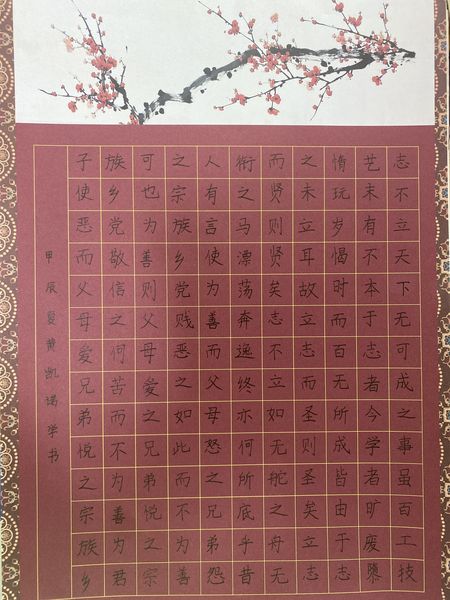 志不立天下无可成之事虽百工技
艺未有不本于志者今学者旷废隳
惰玩岁愒时而百无所成皆由于志
之未立耳故立志而圣则圣矣立志
而贤则贤矣志不立如无舵之舟无
衔之马漂荡奔逸终亦何所底乎昔
人有言使为善而父母怒之兄弟怨
之宗族乡党贱恶之如此而不为善
可也为善则父母爱之兄弟悦之宗
族乡党敬信之何苦而不为善为君
子使恶而父母爱兄弟悦之宗族乡
甲辰夏黄凯学书